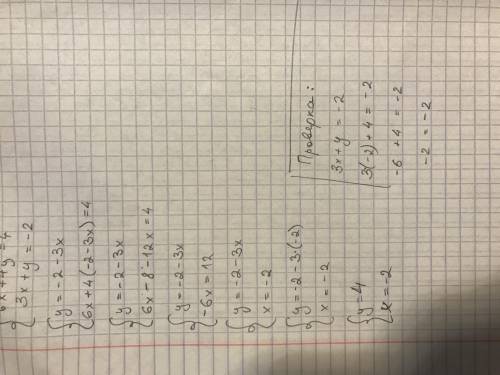 { 6x + 4y = 4
3x + y = -2
{ y = -2 - 3x
6x + 4(-2 - 3x) = 4
{ y = -2 - 3x
6x - 8 - 12x = 4
{ y = -2 - 3x
-6x = 12
{ y = -2 - 3x
x = -2
{ y = -2 - 3·(-2)
x = -2
{ y = 4
x = -2
Проверка:
3x + y = -2
3(-2) + 4 = -2
-6 + 4 = -2
-2 = -2